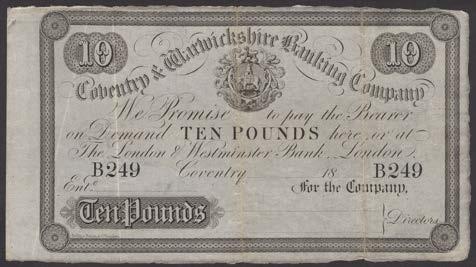 10 10
Coventry & Warwickshire Banking Company
We Promise to pay the Bearer
on Demand TEN POUNDS here, or at
The London & Westminster Bank, London.
B249 Coventry 18 B249
Entd. For the Company,
Ten Pounds Directors